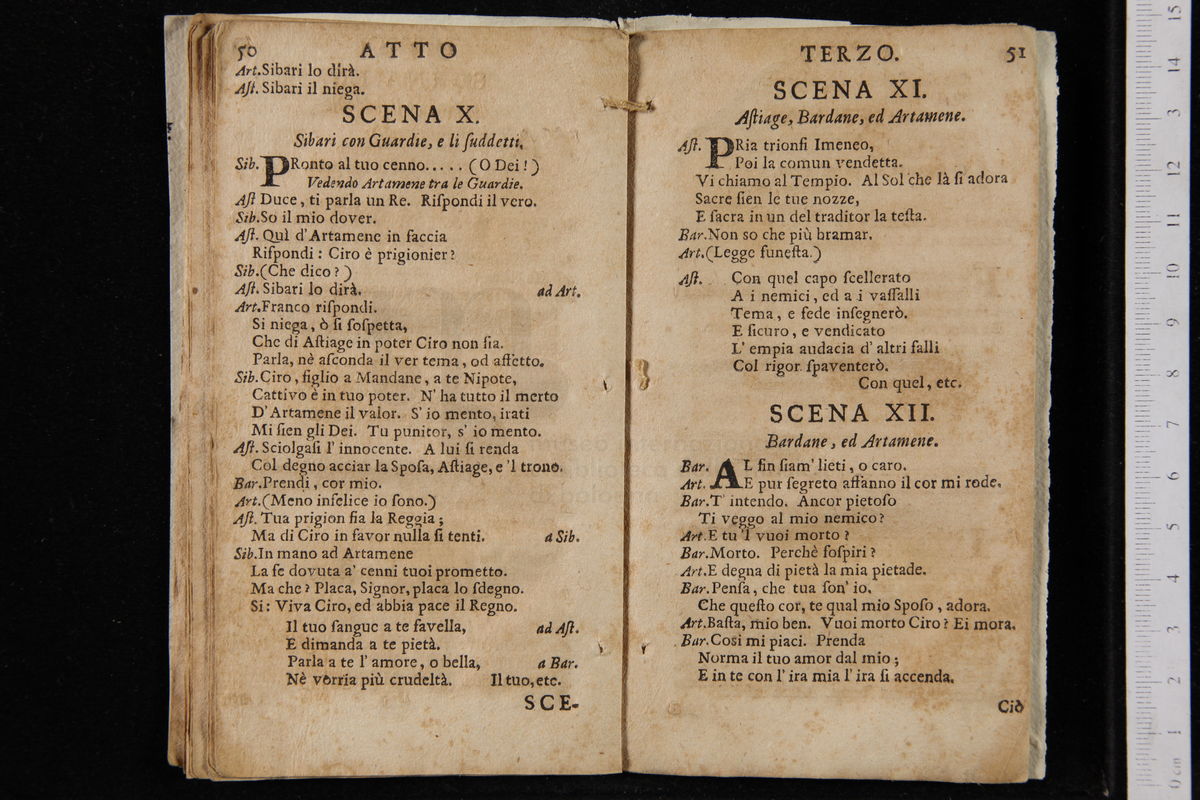 50 ATTO
Art. Sibari lo dirà.
Aſt. Sibari il niega.
SCENA X.
Sibari con Guardie, e li ſuddetti.
Sib. PRonto al tuo cenno..... (O Dei!)
Vedendo Artamene tra le Guardie.
Aſt Duce, ti parla un Re. Riſpondi il vero.
Sib. So il mio dover.
Aſt. Quì d'Artamene in faccia
Riſpondi: Ciro è prigionier?
Sib. (Che dico?)
Aſt. Sibari lo dirà. ad Art.
Art. Franco riſpondi.
Si niega, ò ſi ſoſpetta,
Che di Aſtiage in poter Ciro non ſia.
Parla, nè aſconda il ver tema, od affetto.
Sib. Ciro, figlio a Mandane, a te Nipote,
Cattivo è in tuo poter. N' ha tutto il merto
D'Artamene il valor. S' io mento, irati
Mi ſien gli Dei. Tu punitor, s' io mento.
Aſt. Sciolgaſi l' innocente. A lui ſi renda
Col degno acciar la Spoſa, Aſtiage, e 'l trono.
Bar. Prendi, cor mio.
Art. (Meno infelice io ſono.)
Aſt. Tua prigion ſia la Reggia;
Ma di Ciro in favor nulla ſi tenti. a Sib.
Sib. In mano ad Artamene
La fe dovuta a' cenni tuoi prometto.
Ma che? Placa, Signor, placa lo ſdegno.
Si: Viva Ciro, ed abbia pace il Regno.
Il tuo ſangue a te favella, ad Aſt.
E dimanda a te pietà.
Parla a te l' amore, o bella, a Bar.
Nè vorria più crudeltà. Il tuo, etc.
SCE-
TERZO. 51
SCENA XI.
Aſtiage, Bardane, ed Artamene.
Aſt. PRia trionfi Imeneo,
Poi la comun vendetta.
Vi chiamo al Tempio. Al Sol che là ſi adora
Sacre ſien le tue nozze,
E ſacra in un del traditor la teſta.
Bar. Non so che più bramar.
Art. (Legge funeſta.)
Aſt. Con quel capo ſcellerato
A i nemici, ed a i vaſſalli
Tema, e fede inſegnerò.
E ſicuro, e vendicato
L' empia audacia d' altri falli
Col rigor ſpaventerò.
Con quel, etc.
SCENA XII.
Bardane, ed Artamene.
Bar. AL fin ſiam' lieti, o caro.
Art. E pur ſegreto affanno il cor mi rode.
Bar. T' intendo. Ancor pietoſo
Ti veggo al mio nemico?
Art. E tu 'l vuoi morto?
Bar. Morto. Perchè ſoſpiri?
Art. E degna di pietà la mia pietade.
Bar. Penſa, che tua ſon' io.
Che queſto cor, te qual mio Spoſo, adora.
Art. Baſta, mio ben. Vuoi morto Ciro? Ei mora.
Bar. Cosi mi piaci. Prenda
Norma il tuo amor dal mio;
E in te con l' ira mia l' ira ſi accenda.
Ciò
0 cm 1 2 3 4 5 6 7 8 9 10 11 12 13 14 15